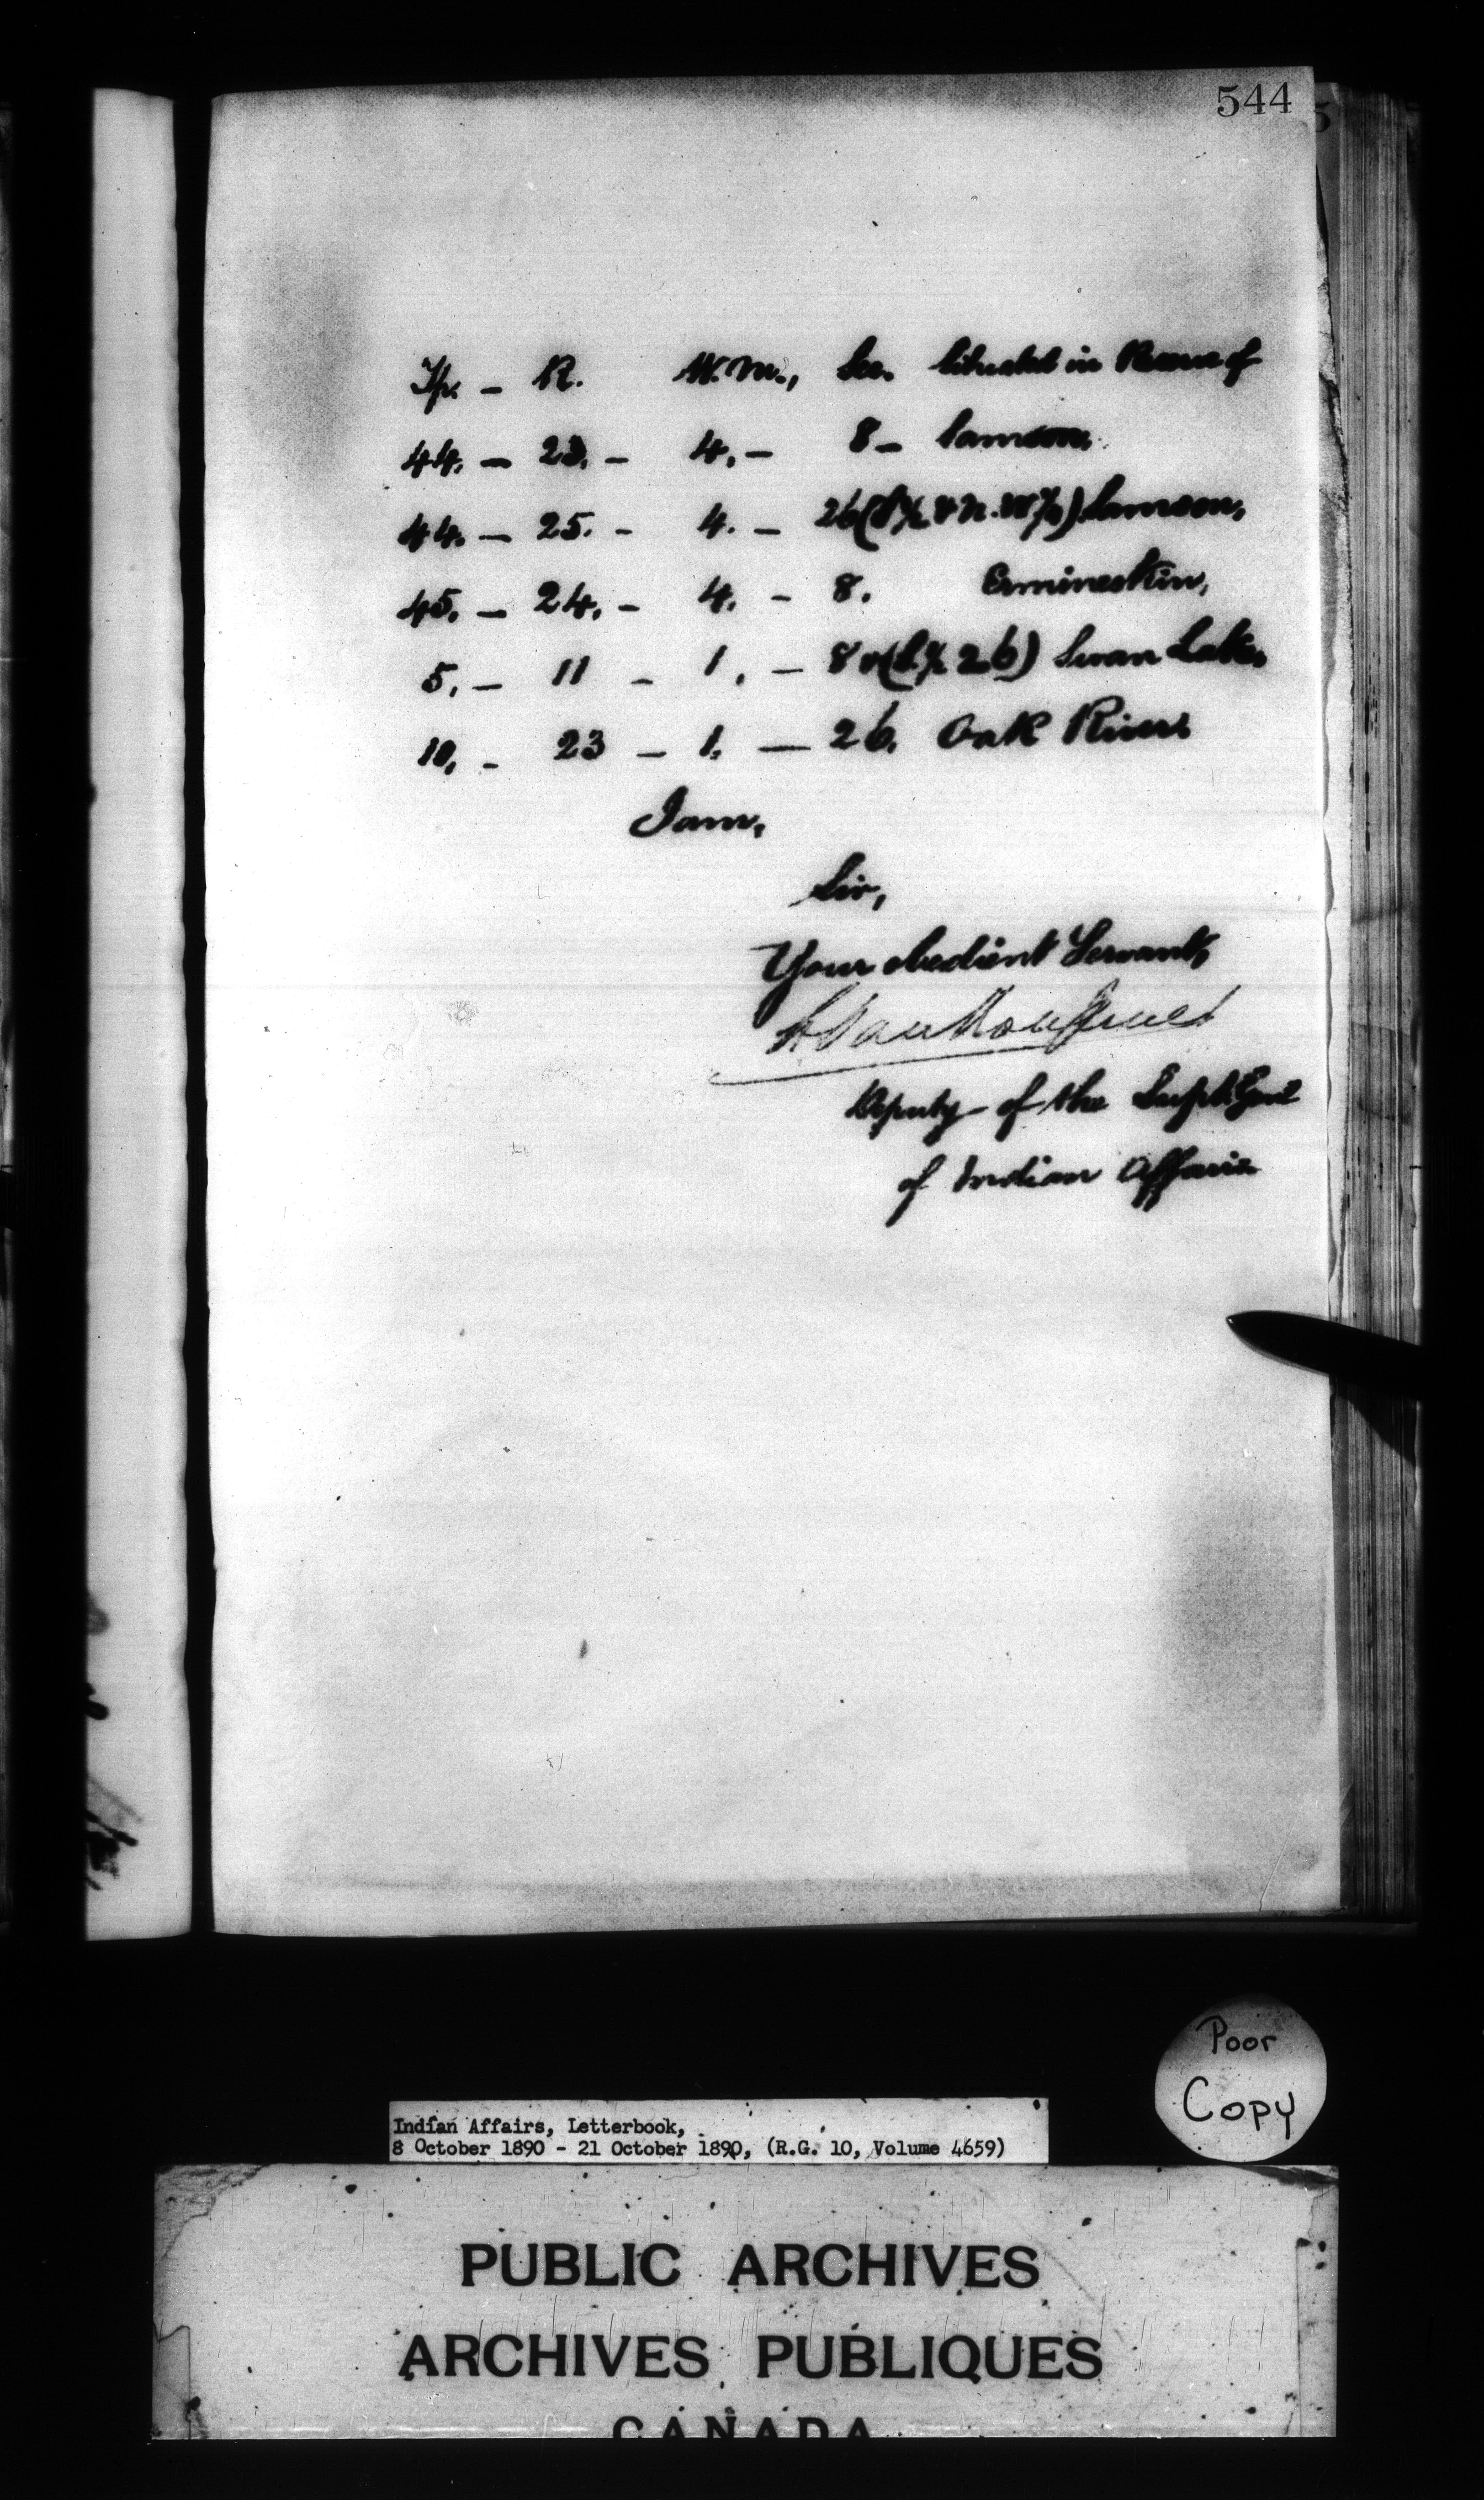 544
Tp. - R. W.M., Sec. Situated in Reserve of
44. - 23. - 4. - 8 - Samson,
44. - 25. - 4. - 26 (S ½ & N.W ¼) Samson,
45. - 24. - 4. - 8. Ermineskin,
5. - 11 - 1. - 8 & (S ½ 26) Swan Lake,
10. - 23 - 1. - 26. Oak River
I am,
Sir,
Your obedient Servant,
L VanKoughnet
Deputy of the Supt. Genl
of Indian Affairs
Poor
Copy
Indian Affairs, Letterbook,
8 October 1890 - 21 October 1890, (R.G. 10, Volume 4659)
PUBLIC ARCHIVES
ARCHIVES PUBLIQUES
CANADA